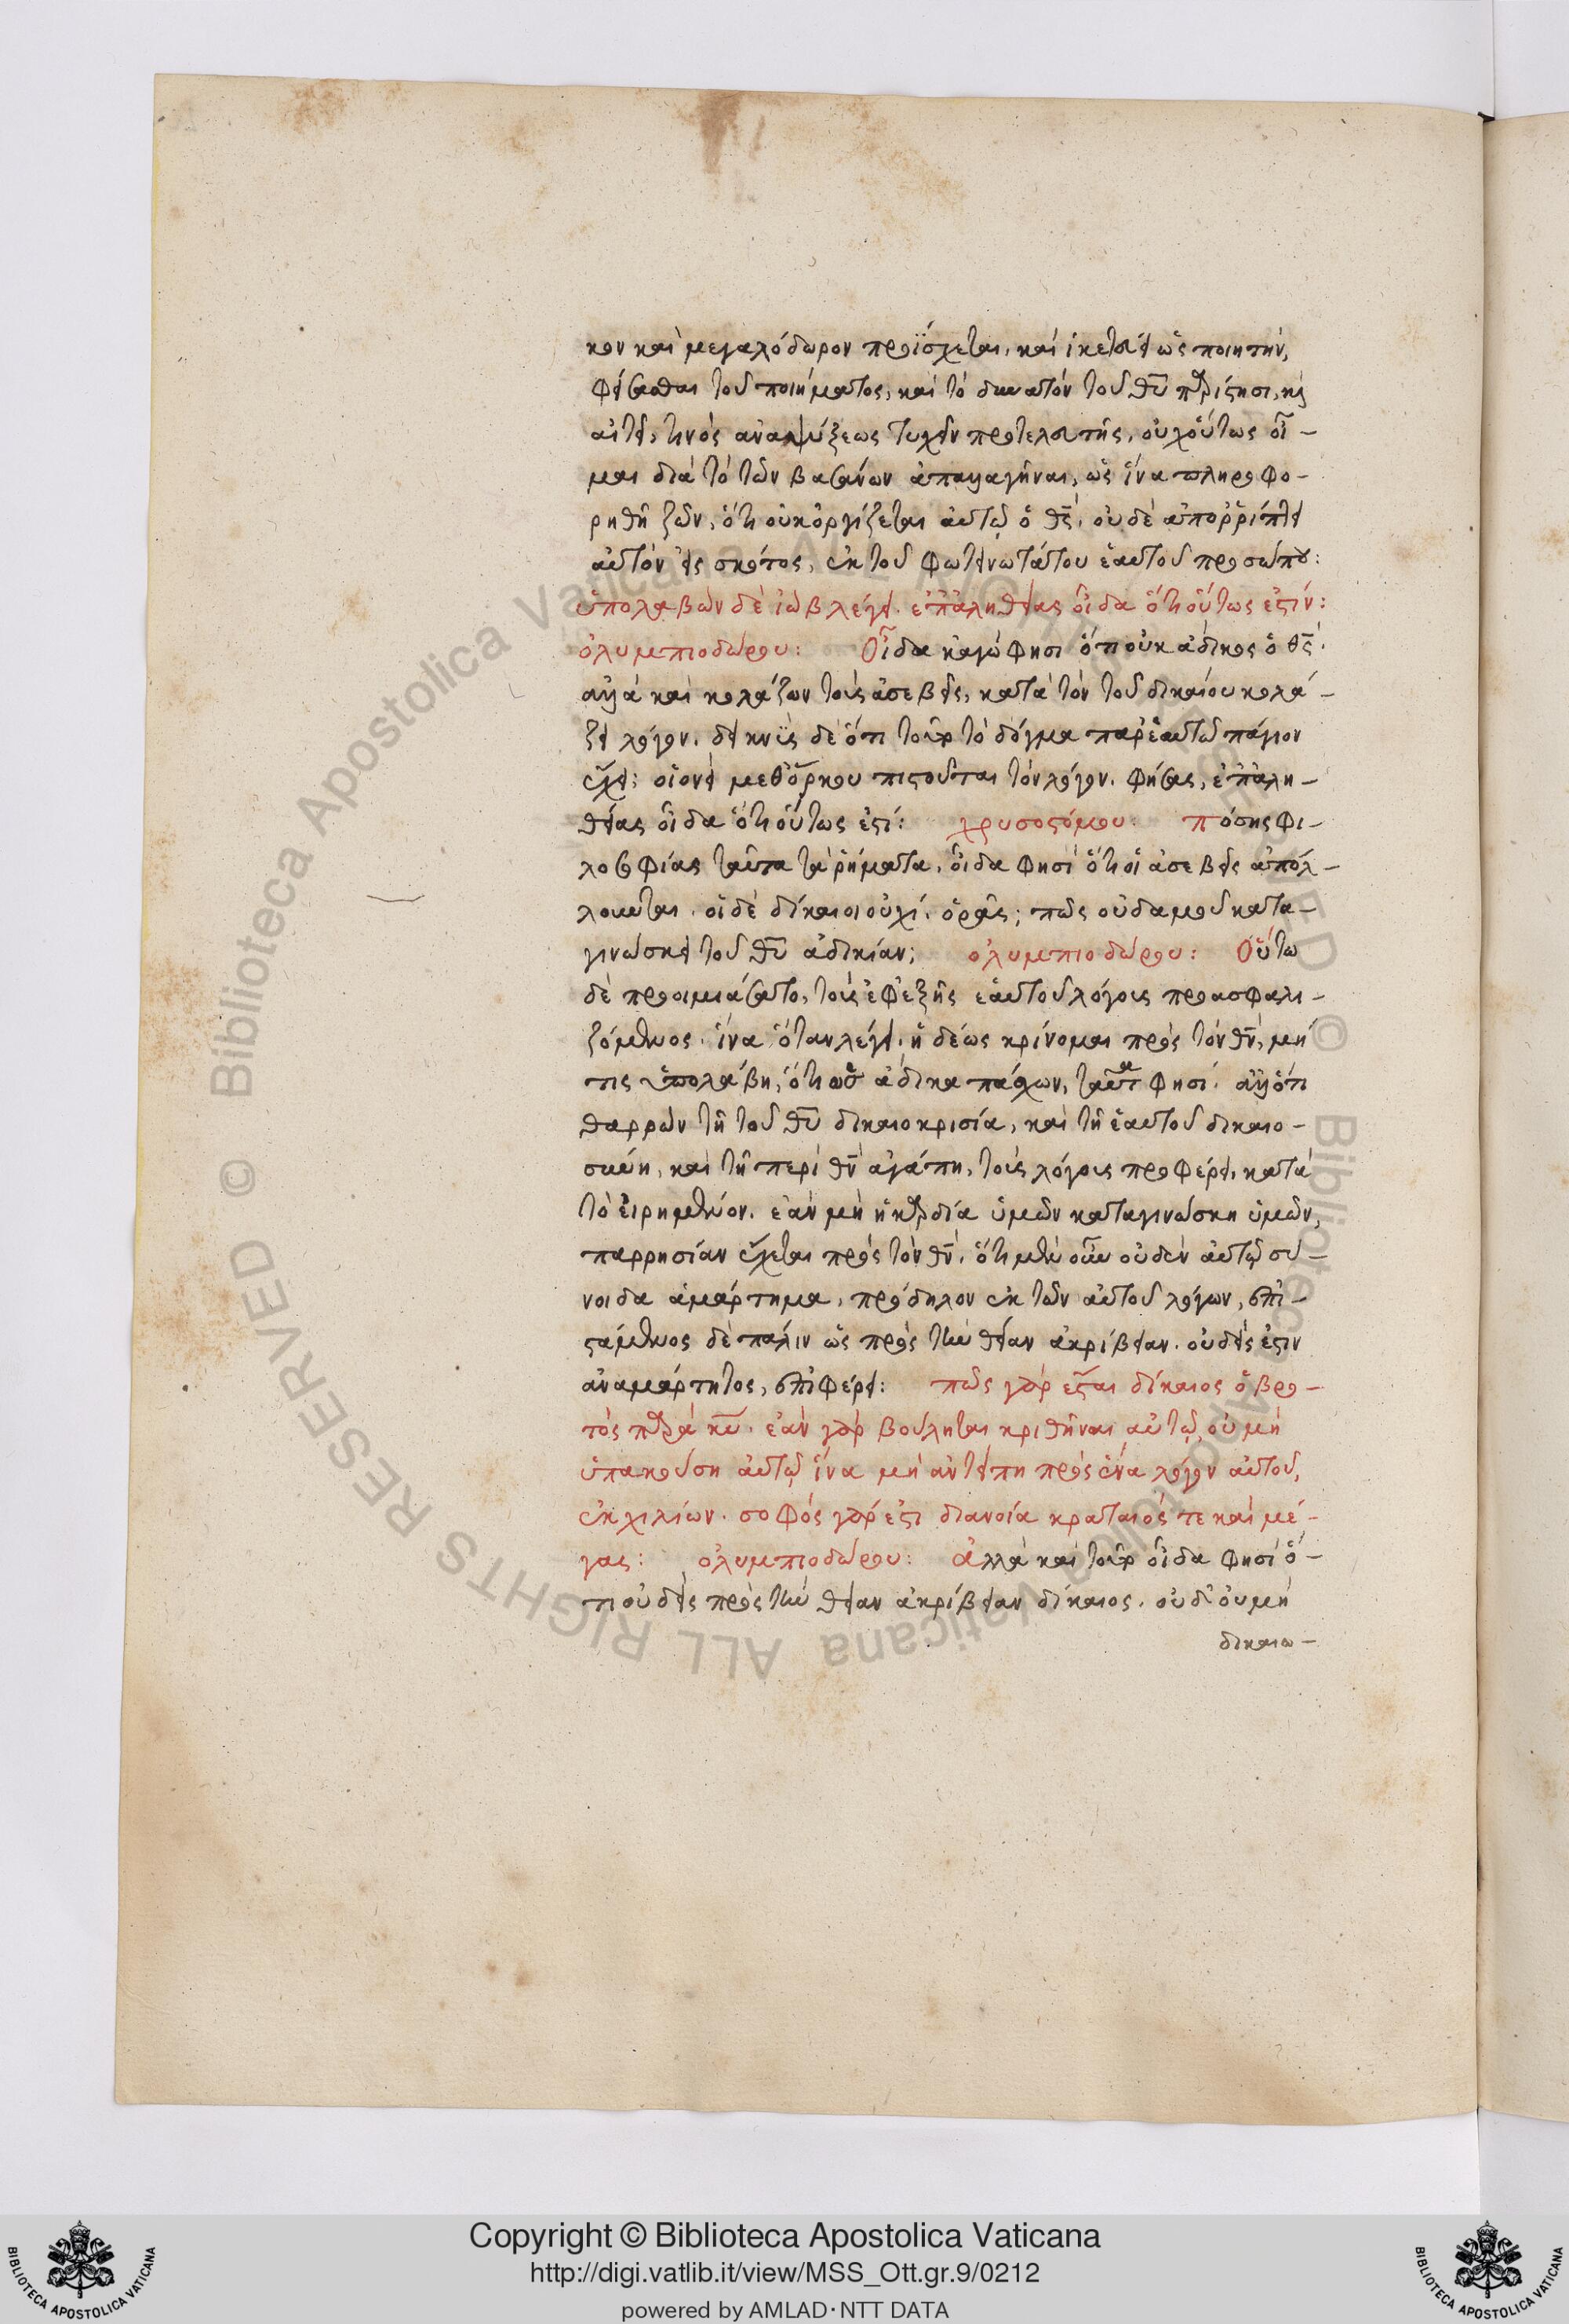 κον καὶ μεγαλόδωρον προΐσχεται, καὶ ἱκετεύει ὡς ποιητὴν,
φείσασθαι τοῦ ποιήματος, καὶ τὸ δυνατὸν τοῦ θυ παρίστησι, καὶ
αἰτεῖ, τινὸς ἀναψύξεως τυχεῖν πρὸ τελευτῆς, οὐχ οὕτως οἶ-
μαι διὰ τὸ τῶν βασάνων ἀπαλλαγῆναι, ὡς ἵνα πληροφο-
ρηθῆ ζῶν, ὅτι οὐκ ὀργίζεται αὐτῷ ὁ θς, οὐδὲ ἀπορρίπτει
αὐτὸν εἰς σκότος, ἐκ τοῦ φωτεινοτάτου ἑαυτοῦ προσώπου:
ὑπολαβὼν δὲ ἰὼβ λέγει. ἐπ' ἀληθείας οἶδα ὅτι οὕτως ἐστίν:
ὀλυμπιοδώρου: Οἶδα κἀγὼ φησὶ ὅτι οὐκ ἄδικος ὁ θς.
ἀλλὰ καὶ κολάζων τοὺς ἀσεβεῖς, κατὰ τὸν τοῦ δικαίου κολά-
ζει λόγον. δεικνὺς δὲ ὅτι τοῦτο τὸ δόγμα παρ' ἑαυτῶ πάγιον
ἔχει; οἱονεὶ μεθ' ὅρκου πιστοῦται τὸν λόγον. φήσας, ἐπ' ἀλη-
θείας οἶδα ὅτι οὕτως ἐστί: χρυσοστόμου: πόσης φι-
λοσοφίας ταῦτα τὰ ῥήματα, οἶδα φησὶ ὅτι οἱ ἀσεβεῖς ἀπόλ-
λουνται. οἱ δὲ δίκαιοι οὐχί. ὁρᾶς; πῶς οὐδαμοῦ κατα-
γινώσκει τοῦ θυ ἀδικίαν; ὀλυμπιοδώρου: Οὕτω
δὲ προοιμιάσατο, τοὺς ἐφεξῆς ἑαυτοῦ λόγους προασφαλι-
ζόμενος. ἵνα ὅταν λέγει. ἡδέως κρίνομαι πρὸς τὸν θν, μή
τις ὑπολάβη, ὅτι ὡς ἄδικα πάσχων, ταῦτα φησί. ἀλλ' ὅτι
θαρρῶν τῆ τοῦ θυ δικαιοκρισία, καὶ τῆ ἑαυτοῦ δικαιο-
σύνη, καὶ τῆ περὶ θν ἀγάπη, τοὺς λόγους προφέρει, κατὰ
τὸ εἰρημένον. ἐὰν μὴ ἡ καρδία ὑμῶν καταγινώσκη ὑμῶν,
παρρησίαν ἔχεται πρὸς τὸν θν. ὅτι μὲν οὖν οὐδὲν αὐτῷ σύ-
νοιδα ἁμάρτημα, πρόδηλον ἐκ τῶν αὐτοῦ λόγων, ἐπι-
στάμενος δὲ πάλιν ὡς πρὸς τὴν θείαν ἀκρίβειαν. οὐδεὶς ἐστιν
ἀναμάρτητος, ἐπιφέρει: πῶς γὰρ ἔσται δίκαιος ὁ βρο-
τὸς παρὰ κυ. ἐὰν γὰρ βούληται κριθῆναι αὐτῷ, οὐ μὴ
ὑπακούση αὐτῷ ἵνα μὴ ἀντείπη πρὸς ἕνα λόγον αὐτοῦ,
ἐκ χιλίων. σοφὸς γάρ ἐστι διανοία κραταιός τε καὶ μέ-
γας: ὀλυμπιοδώρου: ἀλλὰ καὶ τοῦτο οἶδα φησὶ ὅ-
τι οὐδεὶς πρὸς τὴν θείαν ἀκρίβειαν δίκαιος. οὐδ' οὐ μὴ
δικαιω-
Copyright © Biblioteca Apostolica Vaticana
http://digi.vatlib.it/view/MSS_Ott.gr.9/0212
powered by AMLAD·NTT DATA